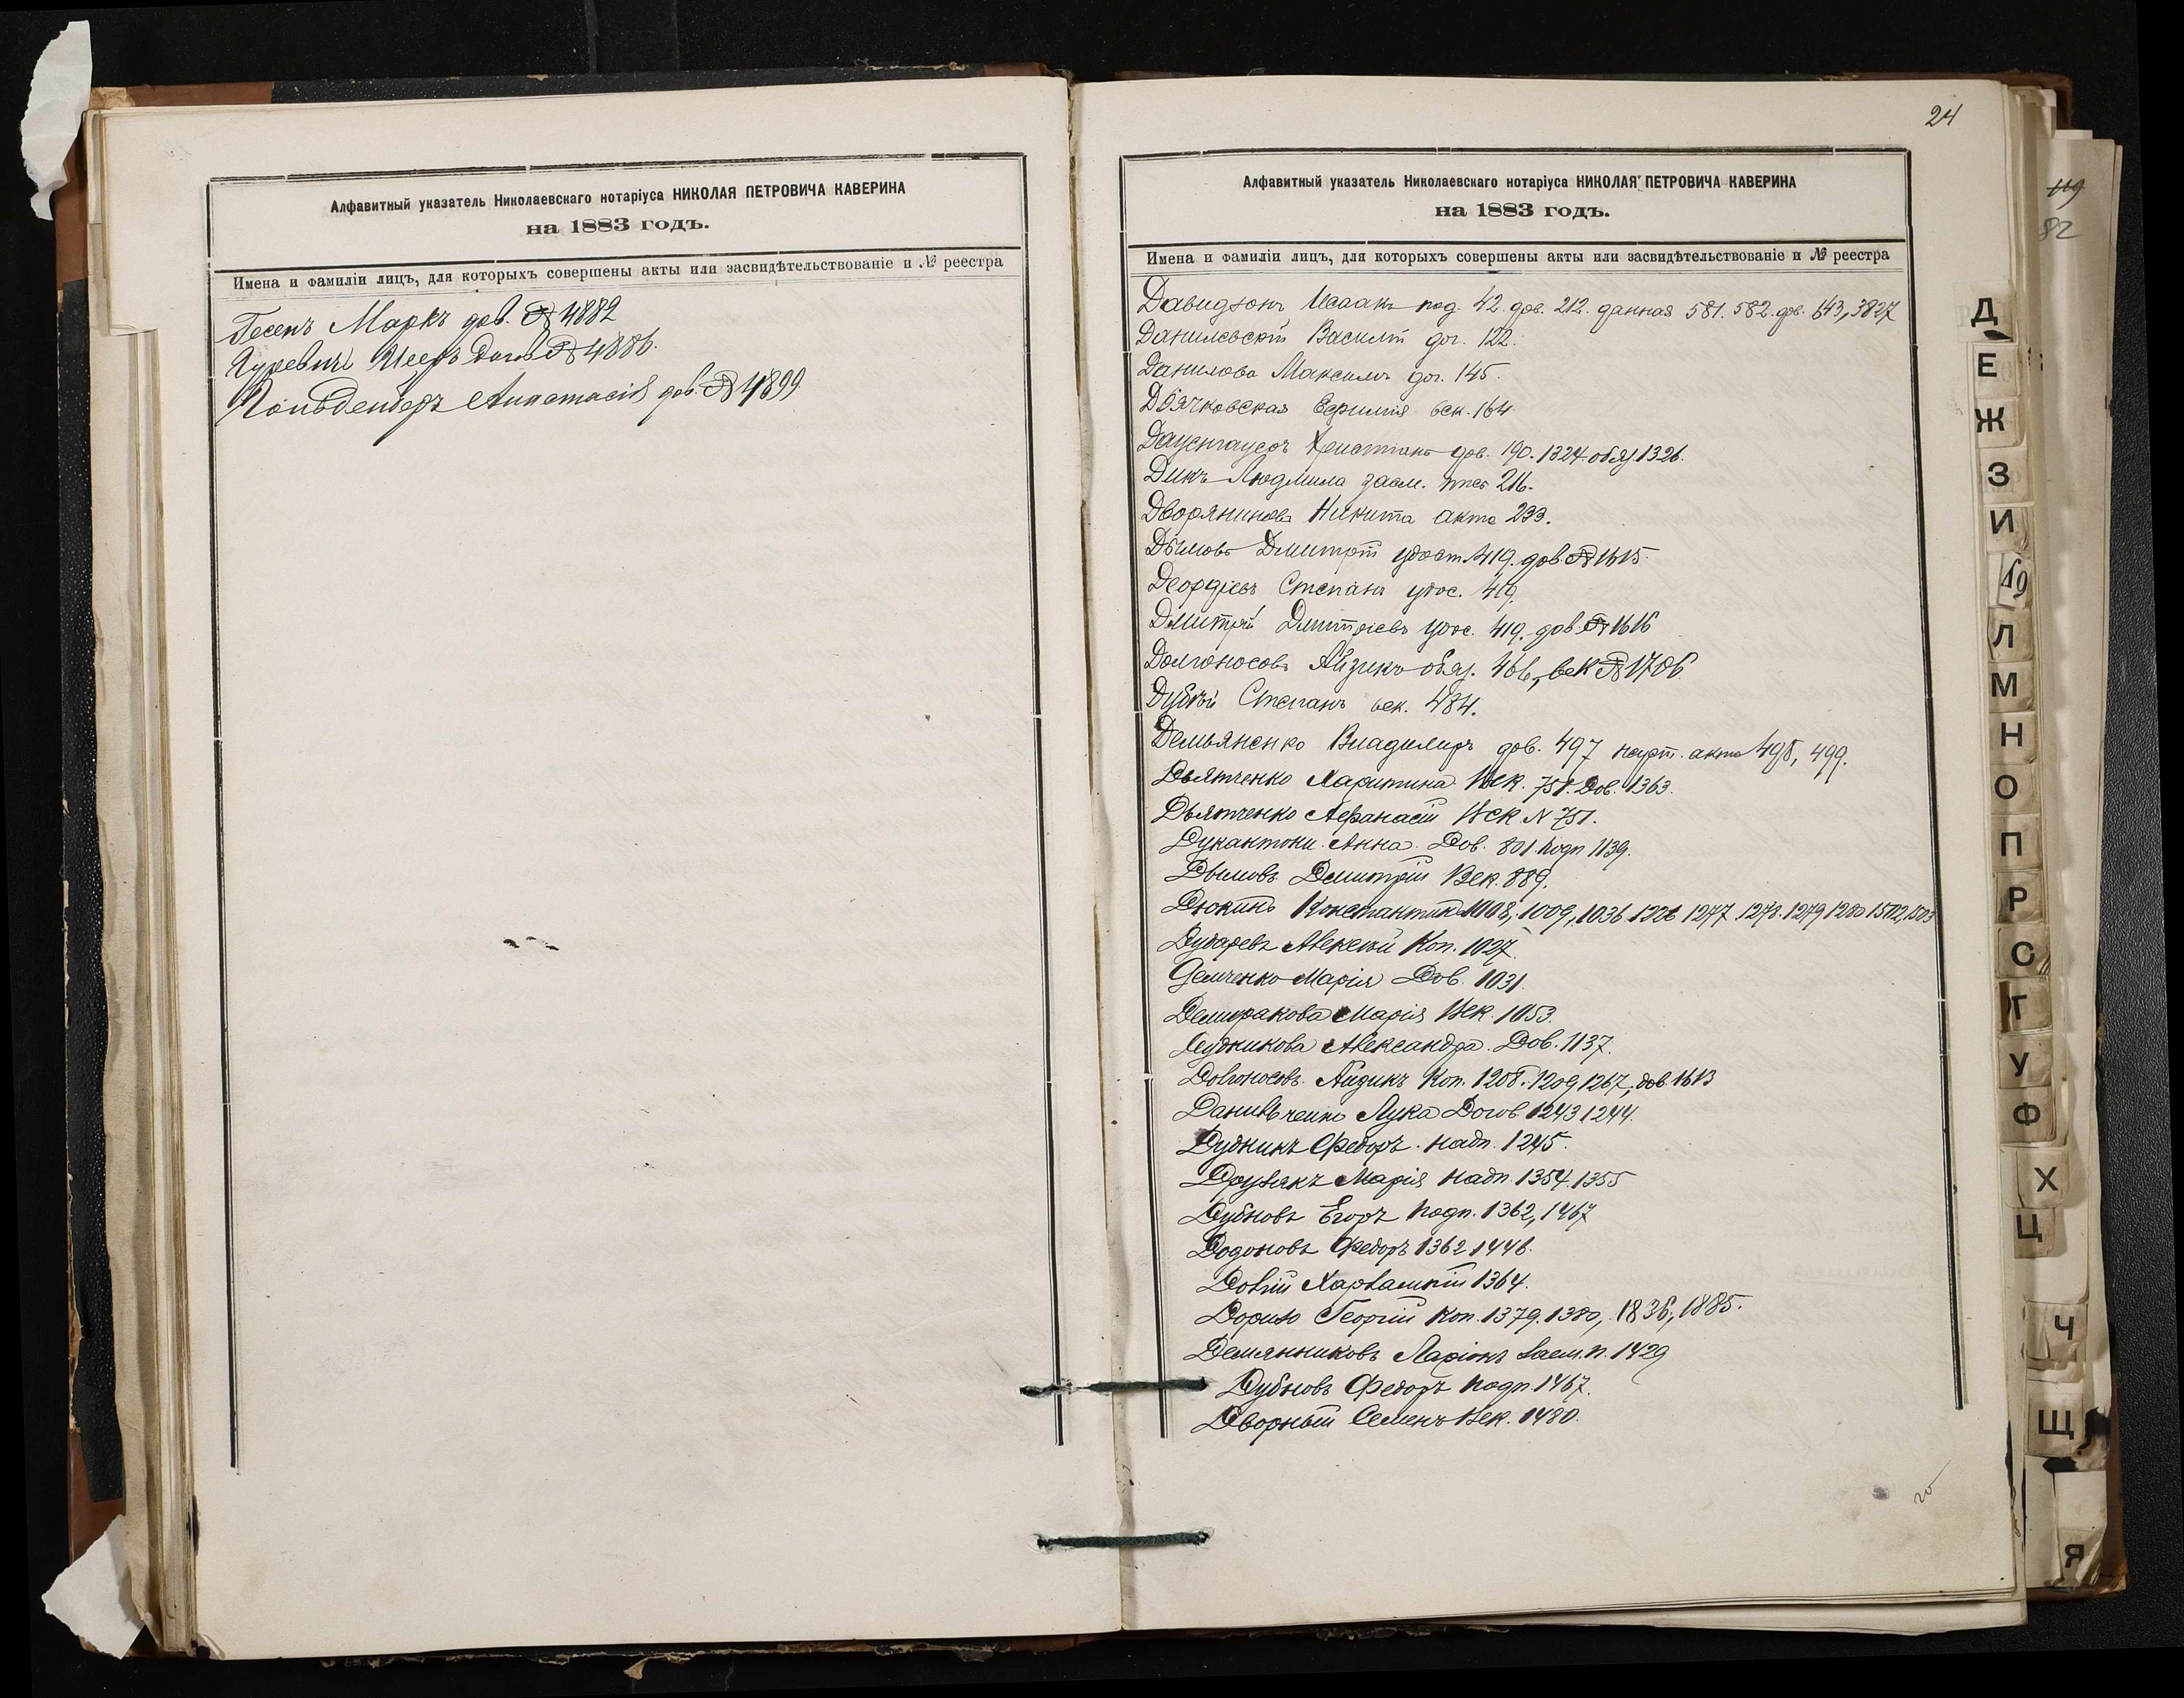 Алфавитный указатель Николаевскаго нотаріуса НИКОЛАЯ ПЕТРОВИЧА КАВЕРИНА
на 1883 годъ.
Имена и фамиліи лицъ, для которыхъ совершены акты или засвидѣтельствованіе и № реестра
Гесенъ Маркъ дов. № 4882
Гуревичъ № 4886.
Анастасія дов. № 4899
24
Алфавитный указатель Николаевскаго нотаріуса НИКОЛАЯ ПЕТРОВИЧА КАВЕРИНА
на 1883 годъ.
Имена и фамиліи лицъ, для которыхъ совершены акты или засвидѣтельствованіе и № реестра
Давидзонъ Исаакъ под. 42. дов. 212. данная 581. 582. дов. 643, 3827
Данилевскій Василій дог. 122.
Данилова Максимъ дог. 145.
Евфимія век. 164
Христіанъ дов. 190. 1324 обяз 1326.
Дикъ Людмила заем. 216.
Дворяниновъ Никита акта 233.
Дымовъ Дмитрій удост. 419. дов. № 1615.
Степанъ удос. 419.
Дмитрій Дмитріевъ удос. 419. дов № 1616
Долгоносовъ Айзикъ обяз. 466, век № 1706
Дубовй Степанъ век. 484.
Демьяненко Владимиръ дов. 497 акта 498, 499.
Дьятченко Харитина Век. 751. Дов. 1363.
Дьятченко Афанасій Век N 751.
Дукантони Анна. Дов. 801. подп 1139.
Дымовъ Димитрій Век. 889.
Дюкинъ Константинъ 1008, 1009, 1036 1226 1277 1278. 1279 1280 1502, 1503
Дударевъ Алексѣй Коп. 1027.
Демченко Марія Дов. 1031.
Демиракова Марія Век. 1053.
Дудникова Александра. Дов. 1137.
Долгоносовъ Айзикъ Коп. 1208. 1209, 1267, дов. 1613
Данильченко Лука Догов 1243 1244.
Дудникъ Федоръ. надп. 1245.
Друзякъ Марія надп. 1354. 1355
Дубновъ Егоръ подп. 1362, 1467
Додоновъ Федоръ 1362 1446.
Долгій Харлампій 1364.
Доризо Георгій Коп. 1379. 1380, 1836, 1885.
Демянниковъ Ларіонъ заем. п. 1429
Дубновъ Федоръ подп. 1467.
Дворный Семенъ Век. 1480.
119
82
Д
Е
Ж
З
И
Л
М
Н
О
П
Р
С
Т
У
Ф
Х
Ц
Ч
Щ
Я